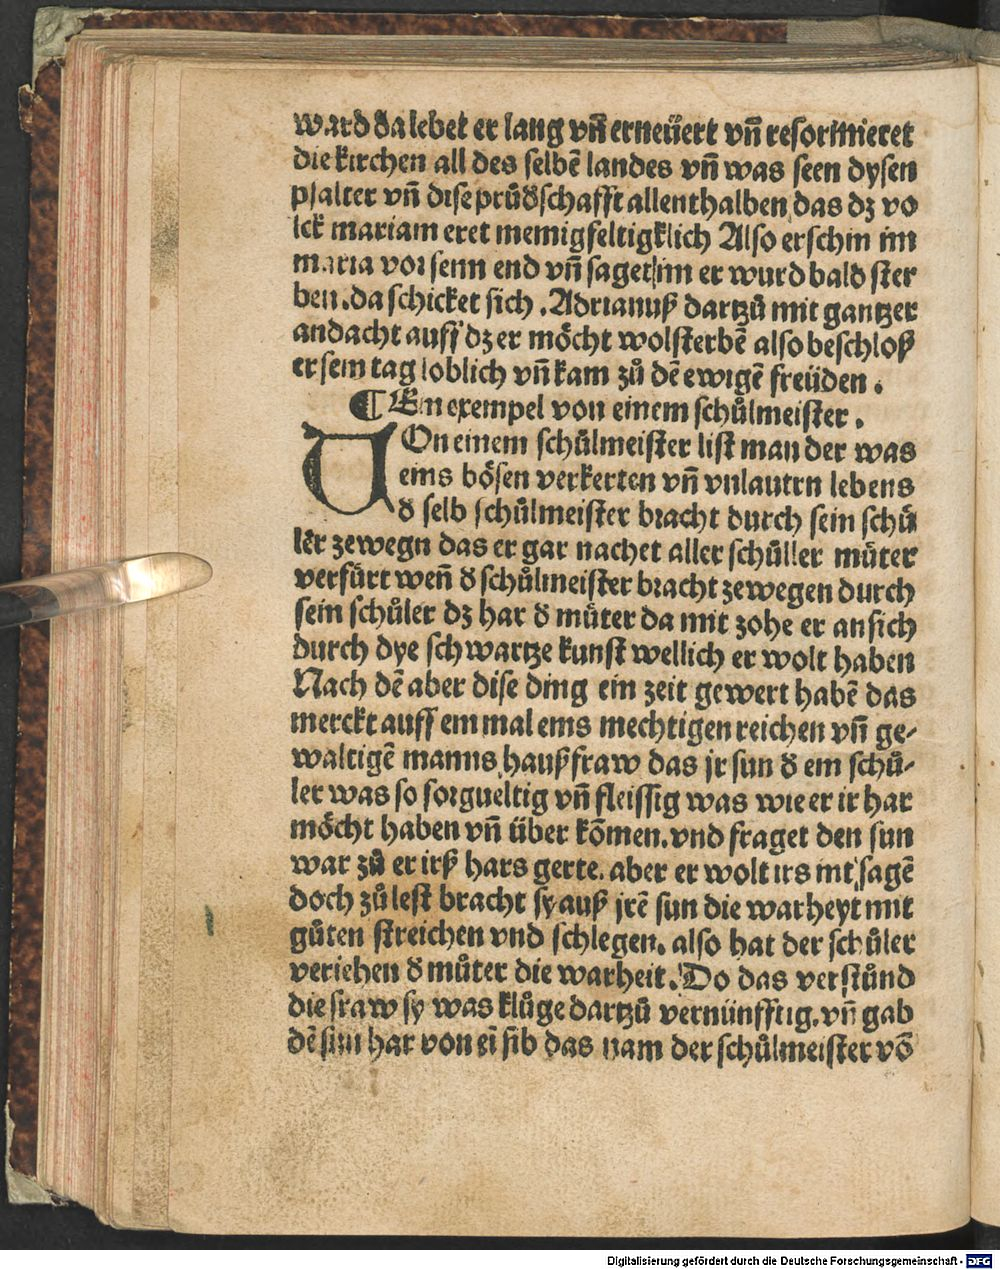 ward da lebet er lang vñ erneüert vñ reformieret
die kirchen all des selbē landes vñ was seen dysen
psalter vñ dise průdschafft allenthalben das dz vo
lck mariam eret menigfeltigklich Also erschin im
maria vor seim end vñ saget im er wurd bald ster
ben. da schicket sich . Adrianuß dartzů mit gantzer
andacht auff dz er möcht wolsterbē also beschloß
er sein tag loblich vñ kam zů dē ewigē freüden .
¶ Ein exempel von einem schůlmeister .
VOn einem schůlmeister list man der was
eins bösen verkerten vñ vnlautrn lebens
đ selb schůlmeister bracht durch sein schů
ler zewegn das er gar nachet aller schůller můter
verfürt weñ đ schůlmeister bracht zewegen durch
sein schůler dz har đ můter da mit zohe er an sich
durch dye schwartze kunst wellich er wolt haben
Nach dē aber dise ding ein zeit gewert habē das
merckt auff ein mal eins mechtigen reichen vñ ge-
waltigē manns haußfraw das jr sun đ ein schů-
ler was so sorgueltig vñ fleissig was wie er ir har
möcht haben vñ über kōmen. vnd fraget den sun
war zů er irß hars gerte. aber er wolt irs nit sagē
doch zů lest bracht sy auß jrē sun die warheyt mit
gůten streichen vnd schlegen. also hat der schůler
veriehen đ můter die warheit. Do das verstůnd
die fraw sy was klůge dartzů vernünfftig. vñ gab
dē sun har von ei͂ sib das nam der schůlmeister vō
Digitalisierung gefördert durch die Deutsche Forschungsgemeinschaft - DFG